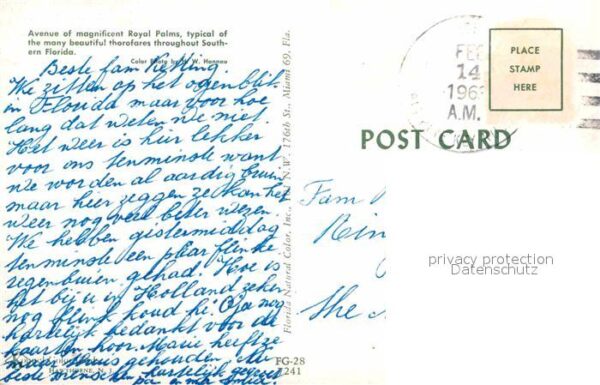 Avenue of magnificent Royal Palms, typical of
the many beautiful thorofares throughout South-
ern Florida.
Color Photo by H. W. Hannau
Beste fam Helling.
We zitten op het ogenblik
in Florida maar voor hoe
lang dat weten we niet.
Het weer is hier lekker
voor ons tenminste want
we worden al aardig bruin
maar hier zeggen ze kan het
weer nog veel beter wezen.
We hebben gistermiddag
tenminste een paar flinke
regenbuien gehad. Hoe is
het bij u in Holland zeker
nog flink koud hé. O ja nog
hartelijk bedankt voor de
kaarten hoor. Marie heeft ze
maar thuis gehouden. Nu
beste mensen hartelijk gegroet
pa en ma
HAWTHORNE, N. J.
Florida Natural Color, Inc., N.W. 176th St., Miami 69, Fla.
FG-28
7241
FEB
14
196
A.M.
PLACE
STAMP
HERE
POST CARD
Fam
The
privacy protection
Datenschutz